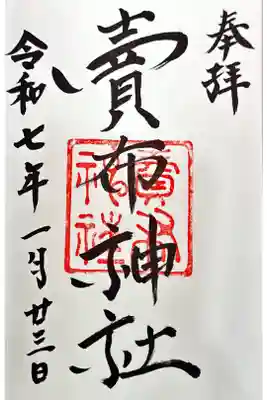 奉拝
賣布神社
令和七年一月廿三日
賣布
神社